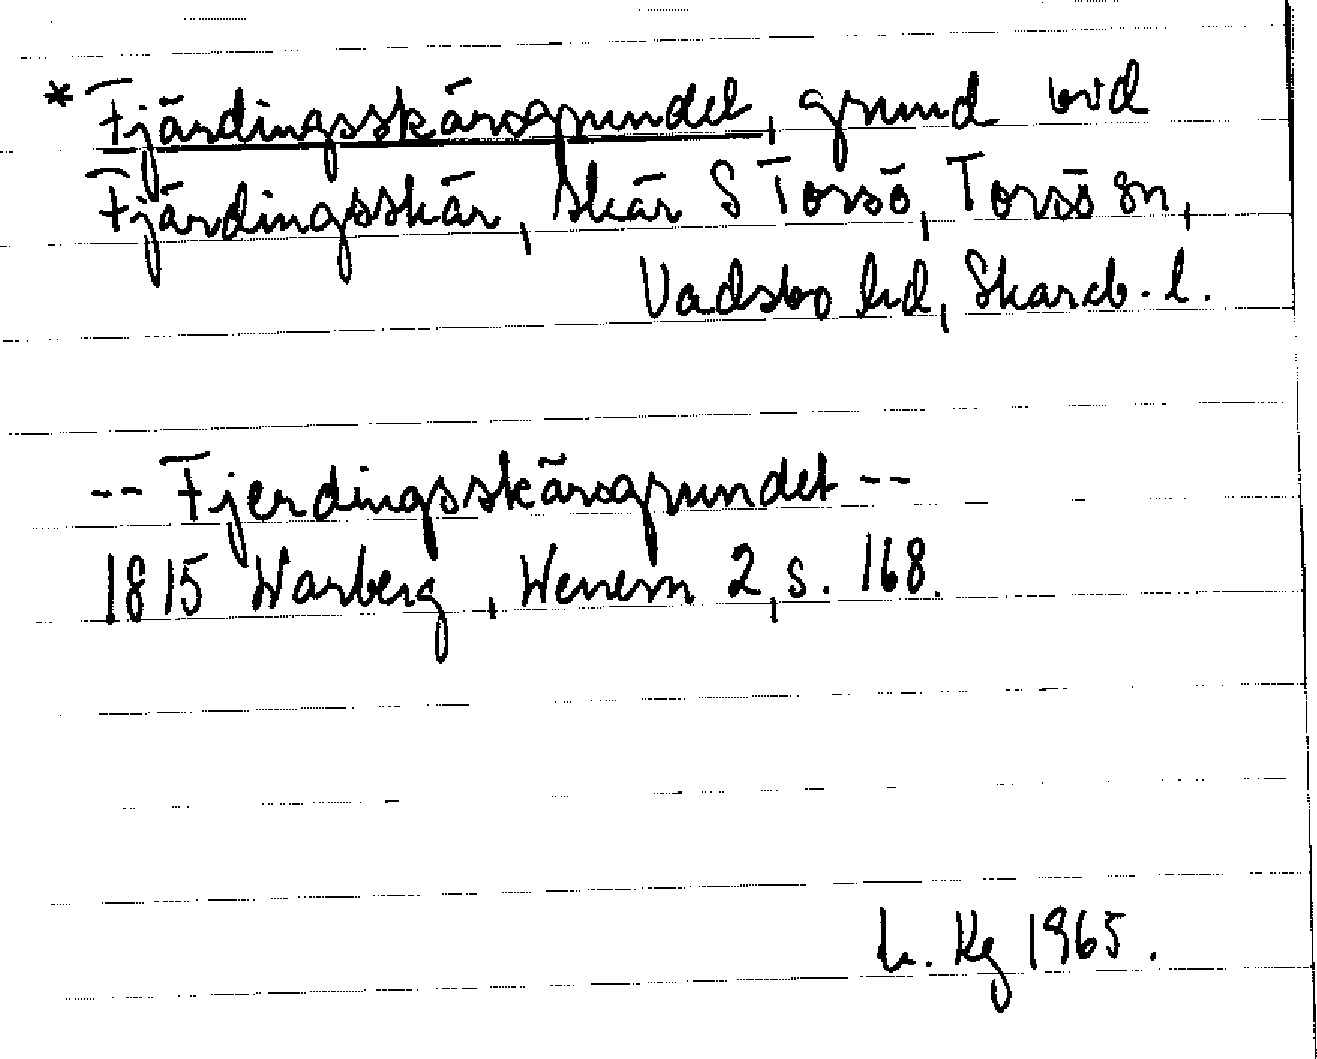 * Fjärdingsskärsgrundet, grund vid
Fjärdingsskär, skär S Torsö, Torsö sn,
Vadsbo hd, Skarab. l.
-- Fjerdingsskärsgrundet --
1815 Warberg, Wenern 2, s. 168.
L. Kg 1965.